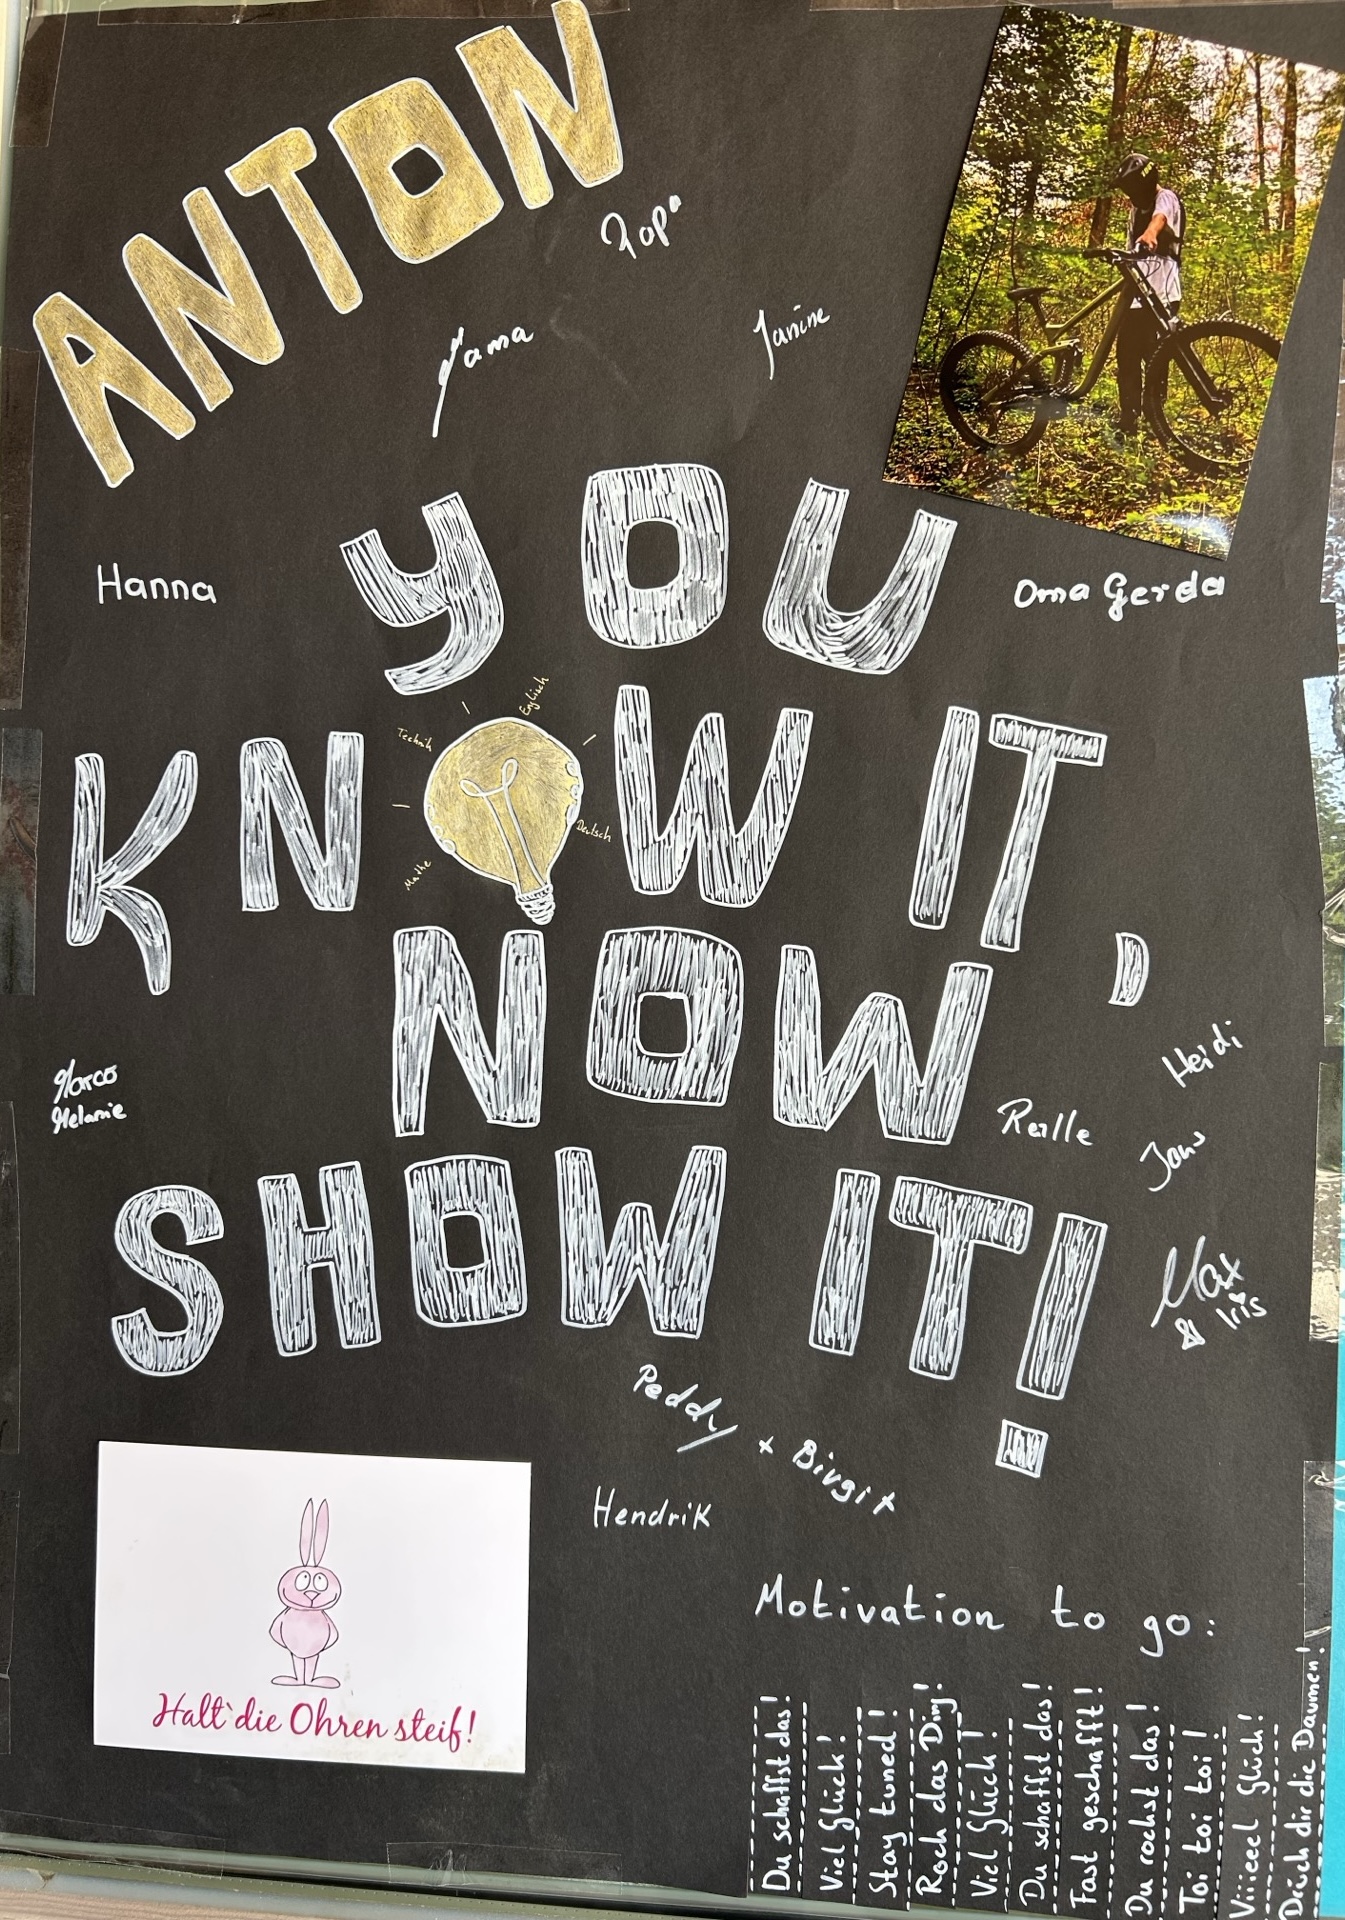 ANTON
Papa
Mama
Janine
YOU
Hanna
Oma Gerda
Englisch
Technik
KNOW IT,
Deutsch
Mathe
NOW
Heidi
Marco
Melanie
Jan
SHOW IT!
Max
& Iris
Peddy + Birgit
Hendrik
Motivation to go:
Halt`die Ohren steif!
Du schaffst das!
Viel Glück!
Stay tuned!
Rock das Ding!
Viel Glück!
Du schaffst das!
Fast geschafft!
Du rockst das!
Toi toi toi!
Viieeel Glück!
Drück dir die Daumen!